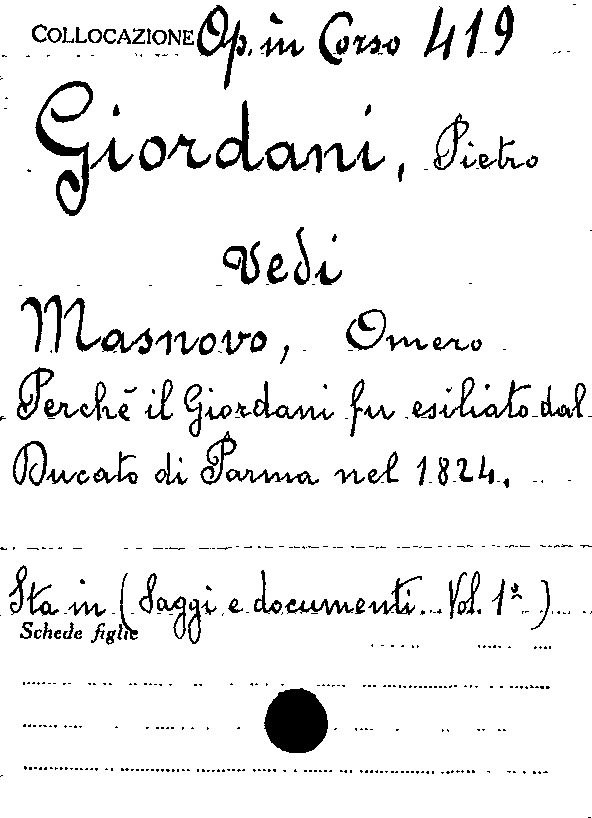 COLLOCAZIONE Op. in Corso 419
Giordani, Pietro
Vedi
Masnovo, Omero
Perchè il Giordani fu esiliato dal
Ducato di Parma nel 1824.
Sta in (Saggi e documenti. Vol. 1º)
Schede figlie